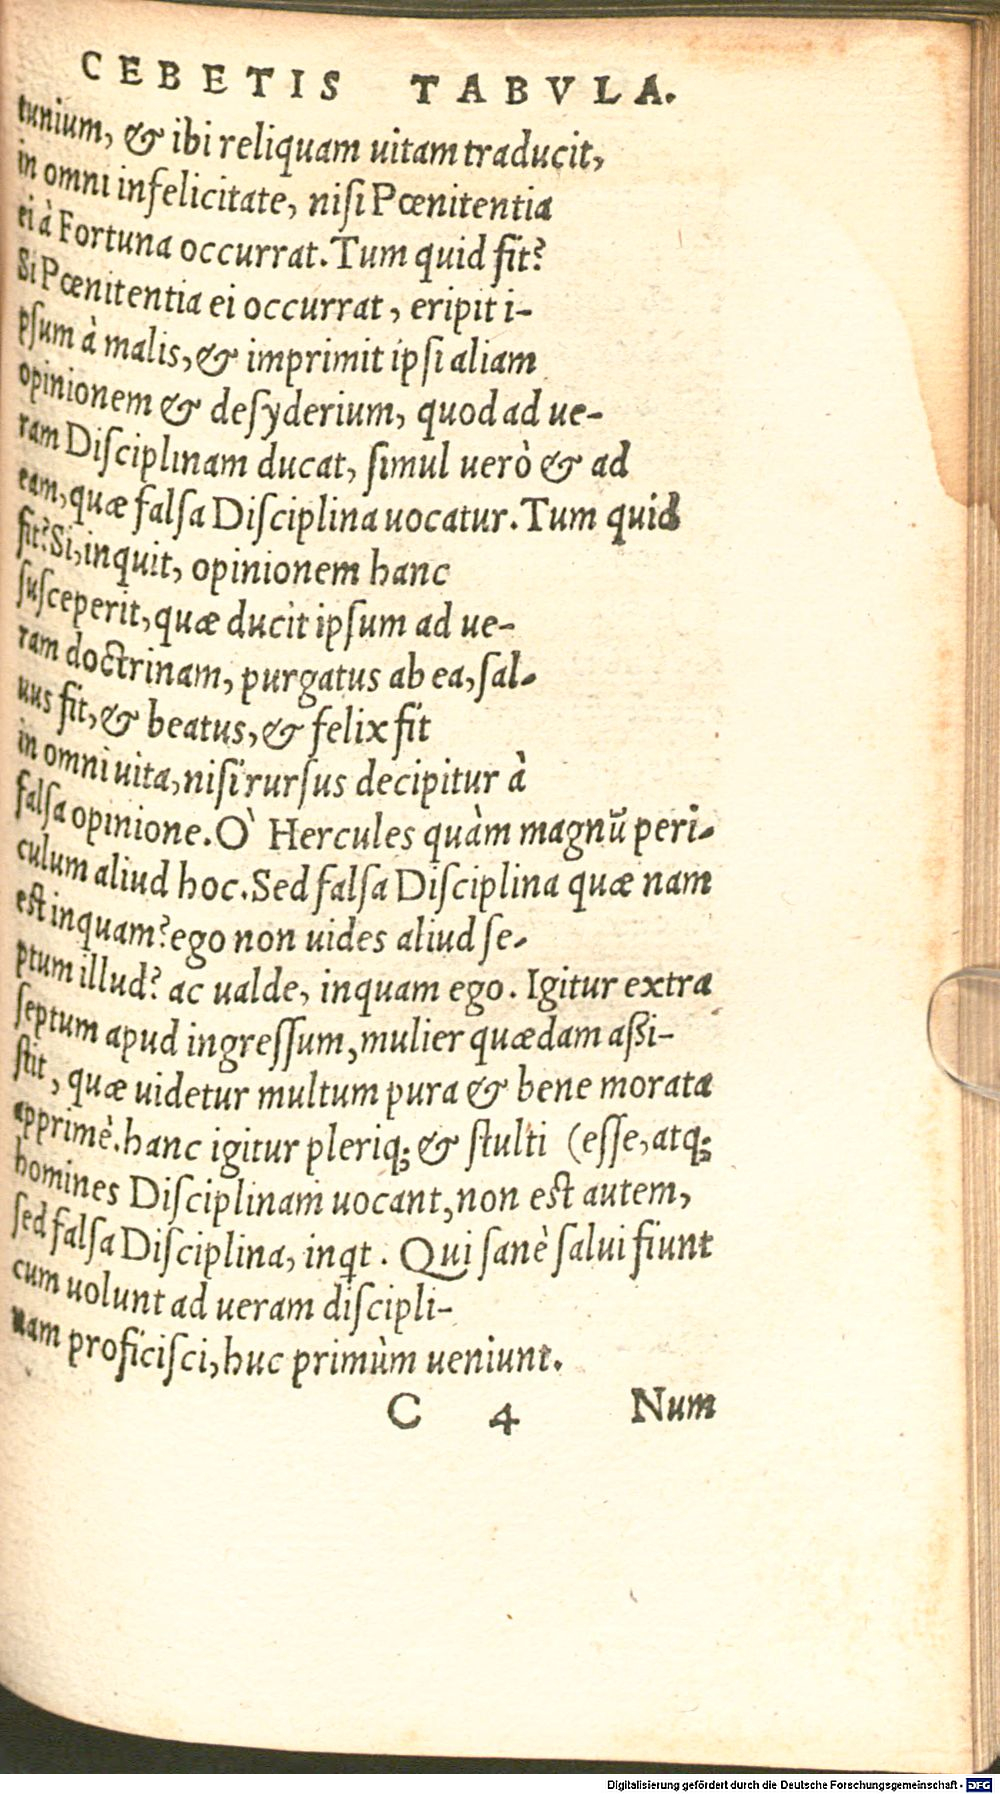 CEBETIS TABVLA.
tunium, & ibi reliquam uitam traducit,
in omni infelicitate, nisi Pœnitentia
ei à Fortuna occurrat. Tum quid fit?
Si Pœnitentia ei occurrat, eripit i-
psum à malis, & imprimit ipsi aliam
opinionem & desyderium, quod ad ue-
ram Disciplinam ducat, simul uerò & ad
eam, quæ falsa Disciplina uocatur. Tum quid
fit? Si, inquit, opinionem hanc
susceperit, quæ ducit ipsum ad ue-
ram doctrinam, purgatus ab ea, sal-
uus fit, & beatus, & felix fit
in omni uita, nisi rursus decipitur à
falsa opinione. O` Hercules quàm magnŭ peri-
culum aliud hoc. Sed falsa Disciplina quæ nam
est inquam? ego non uides aliud se-
ptum illud? ac ualde, inquam ego. Igitur extra
septum apud ingressum, mulier quædam aßi-
stit, quæ uidetur multum pura & bene morata
apprimè. hanc igitur pleriq; & stulti (esse, atq;
homines Disciplinam uocant, non est autem,
sed falsa Disciplina, inqt. Qui sanè salui fiunt
cum uolunt ad ueram discipli-
nam proficisci, huc primùm ueniunt.
C 4 Num
Digitalisierung gefördert durch die Deutsche Forschungsgemeinschaft - DFG